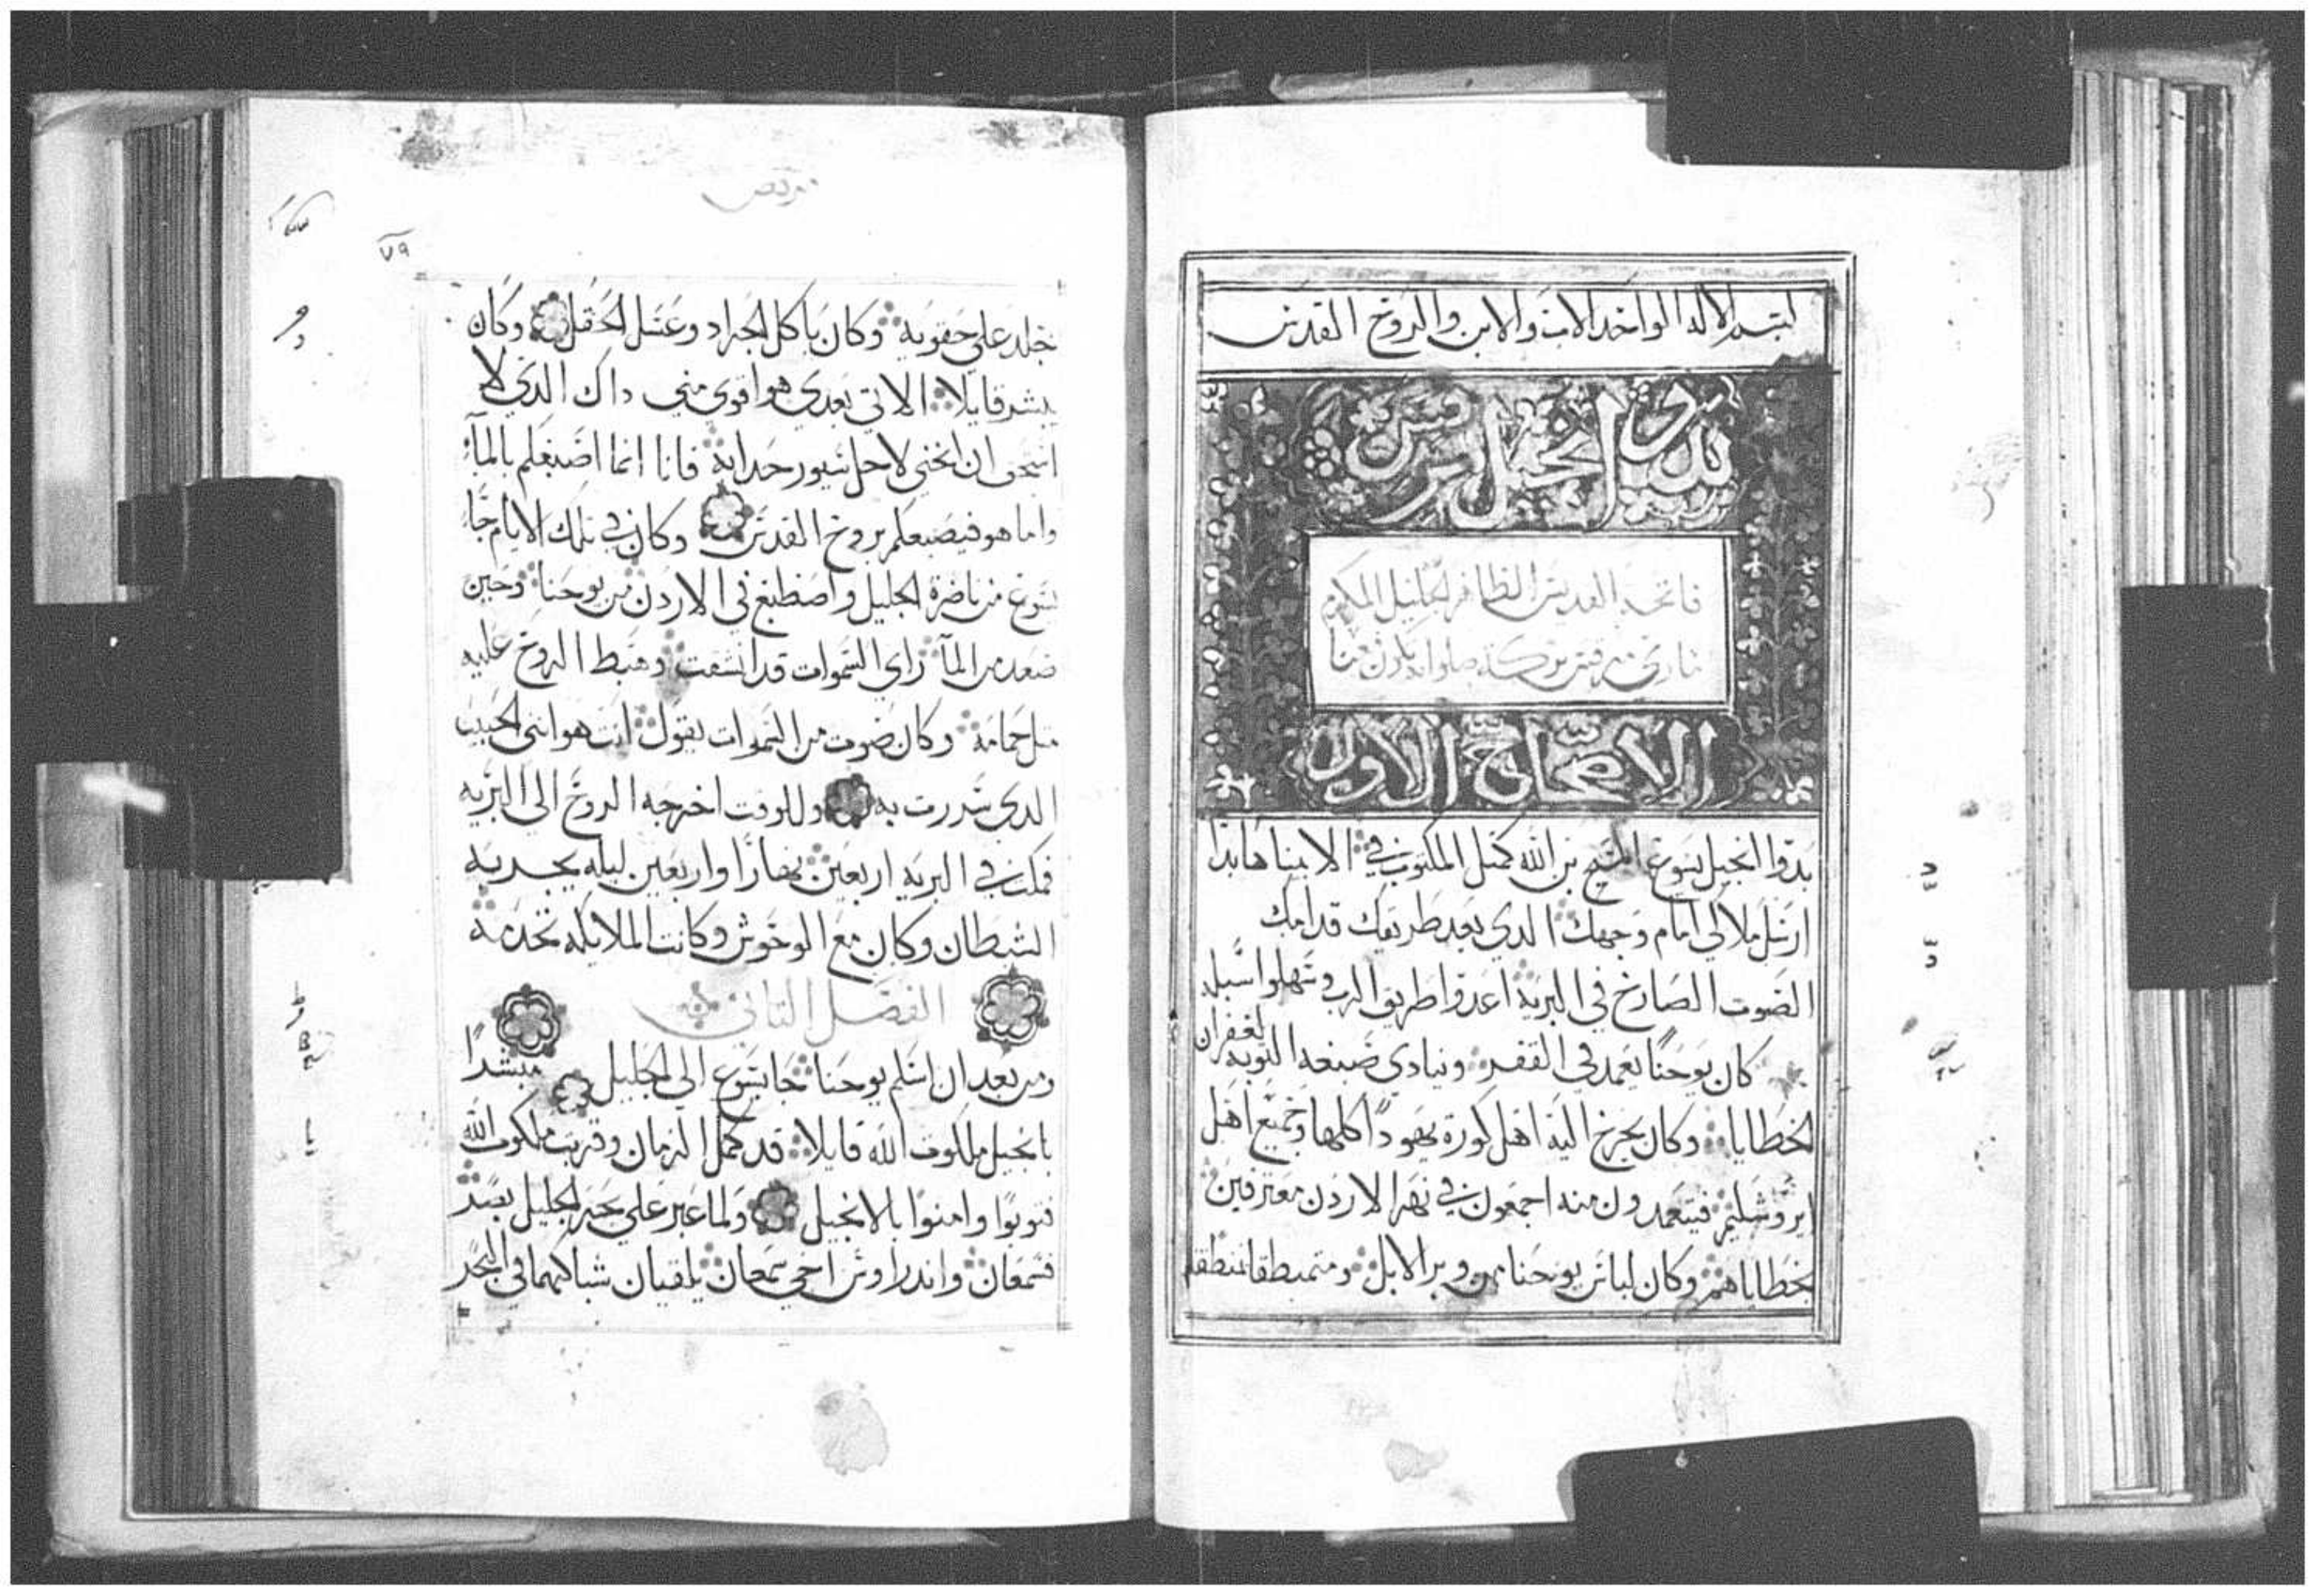 بسم الاله الواحد الاب والابن والروح القدس
بدو انجيل مرقس
فاتحة القديس الطاهر الجليل المكرم
ماري مرقس بركة صلواته تكون معنا
الاصحاح الاول
بدوا انجيل يسوع المسيح بن الله كمثل المكتوب في الانبيا هاندا
ارسل ملاكي امام وجهك الدي يعد طريقك قدامك
الصوت الصارخ في البرية اعدوا طريق الرب وسهلوا سبله
كان يوحنا يعمد في القفر وينادي صبغه التوبه لغفران
الخطايا وكان يخرج اليه اهل كورة يهودا كلها وجميع اهل
ايروشليم فيتعمدون منه اجمعون في نهر الاردن معترفين
بخطاياهم وكان لباس يوحنا من وبر الابل ومتمنطقا منطقه
مرقص
٧٩
جلد علي حقويه وكان ياكل الجراد وعسل الحقل وكان
يبشر قايلا الاتي بعدي هو اقوي مني داك الدي لا
استحق ان انحني لاحل سيور حدايه فانا انما اصبغكم بالمآء
واما هو فيصبغكم بروح القدس وكان في تلك الايام جآء
يسوع من ناصرة الجليل واصطبغ في الاردن من يوحنا وحين
صعد من المآ راي السموات قد انشقت وهبط الروح عليه
مثل حمامة وكان صوت من السموات يقول انت هو ابني الحبيب
الدي سررت به وللوقت اخرجه الروح الي البريه
فمكث في البريه اربعين نهارا واربعين ليله يجربه
الشيطان وكان مع الوحوش وكانت الملايكه تخدمه
الفصل الثاني
ومن بعد ان اسلم يوحنا جا يسوع الي الجليل مبشرا
بانجيل ملكوت الله قايلا قد كمل الزمان وقربت ملكوت الله
فتوبوا وامنوا بالانجيل ولما عبر علي بحر الجليل بصر
سمعان واندراوس اخي سمعان يلقيان شباكهما في البحر